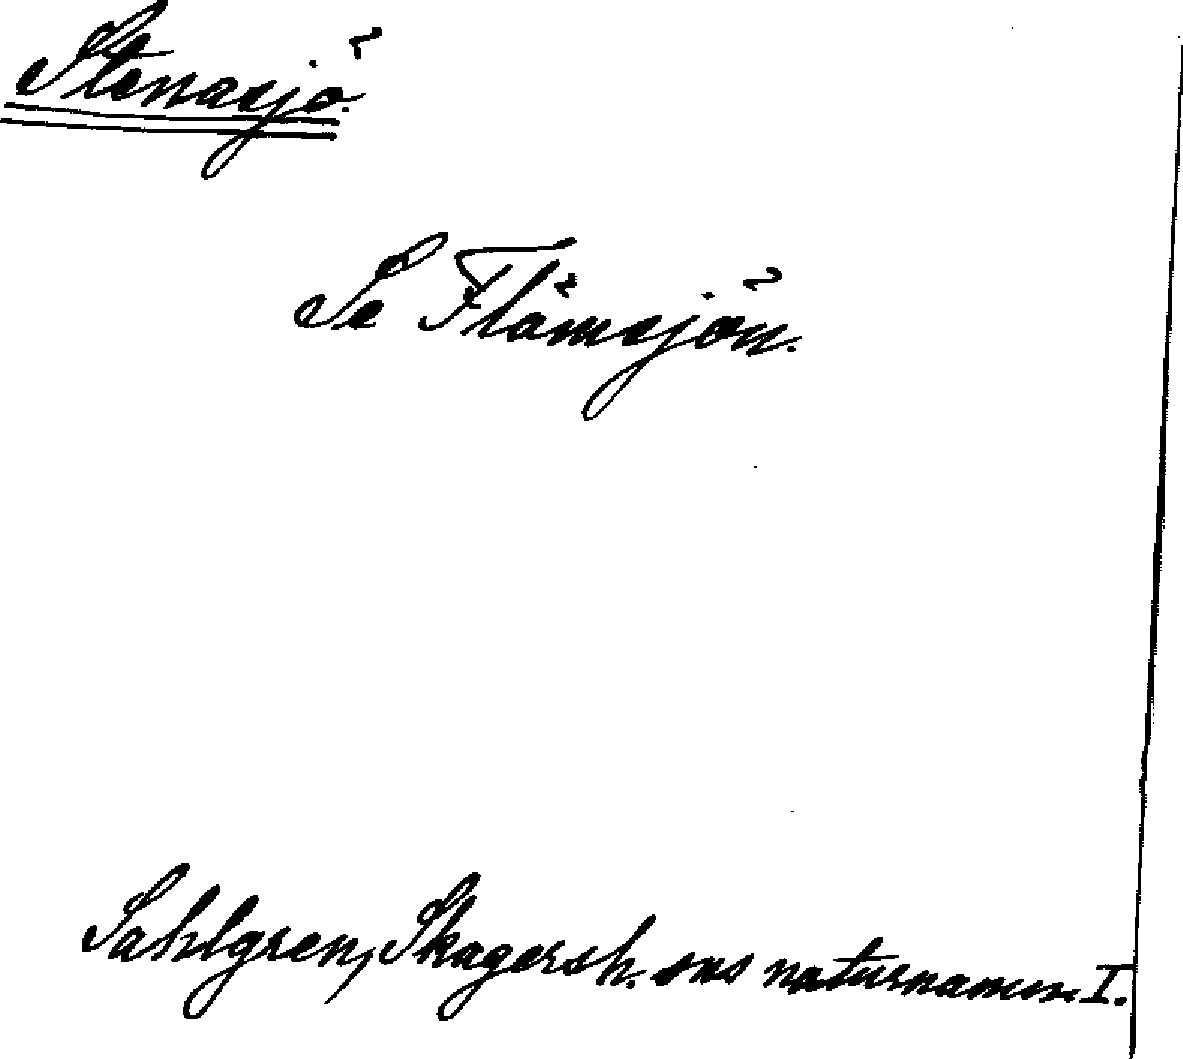 Stenasjö.
Se Flämsjön.
Sahlgren, Skagersh. sns naturnamn. I.